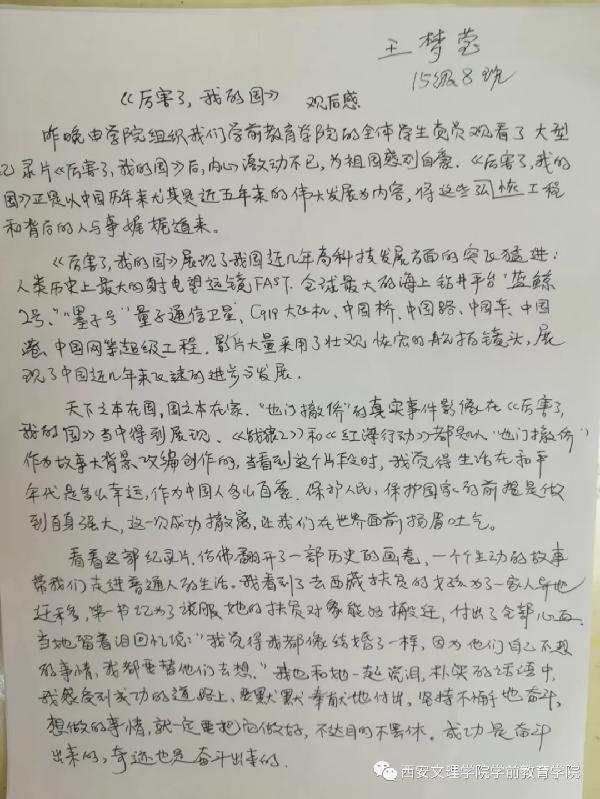 王梦莹
15级8班
《厉害了，我的国》 观后感
昨晚由学院组织我们学前教育学院的全体学生党员观看了大型
记录片《厉害了，我的国》后，内心激动不已，为祖国感到自豪。《厉害了，我的
国》正是以中国历年来尤其是近五年来的伟大发展为内容，将这些恢工程
和背后的人与事娓娓道来。
《厉害了，我的国》展现了我国近几年高科技发展方面的突飞猛进：
人类历史上最大的射电望远镜FAST、全球最大的海上钻井平台“蓝鲸
2号”、“墨子号”量子通信卫星、C919大飞机、中国桥、中国路、中国车、中国
港、中国网等超级工程。影片大量采用了壮观恢宏的航拍镜头，展
现了中国近几年来飞速的进步与发展。
天下之本在国，国之本在家。“也门撤侨”的真实事件影像在《厉害了，
我的国》当中得到展现、《战狼2》和《红海行动》都是以“也门撤侨”
作为故事大背景改编创作的，当看到这个片段时，我觉得生活在和平
年代是多么幸运，作为中国人多么自豪。保护人民，保护国家的前提是做
到自身强大，这一次成功撤离，让我们在世界面前扬眉吐气。
看着这部纪录片，仿佛翻开了一部历史的画卷，一个个生动的故事
带我们走进普通人的生活。我看到了去西藏扶贫的为了一家人异地
迁移，第一书记为了说服她的扶贫对象能够搬迁，付出了全部心血，
当她留着泪回忆说：“我觉得我都像结婚了一样，因为他们自己不想
的事情，我都要替他们去想。”我也和她一起流泪，朴实的话语中，
我感受到成功的道路上，要默默奉献地付出，坚持不懈地奋斗，
想做的事情，就一定要把它做好，不达目的不罢休。成功是奋斗
出来的，奇迹也是奋斗出来的。
西安文理学院学前教育学院